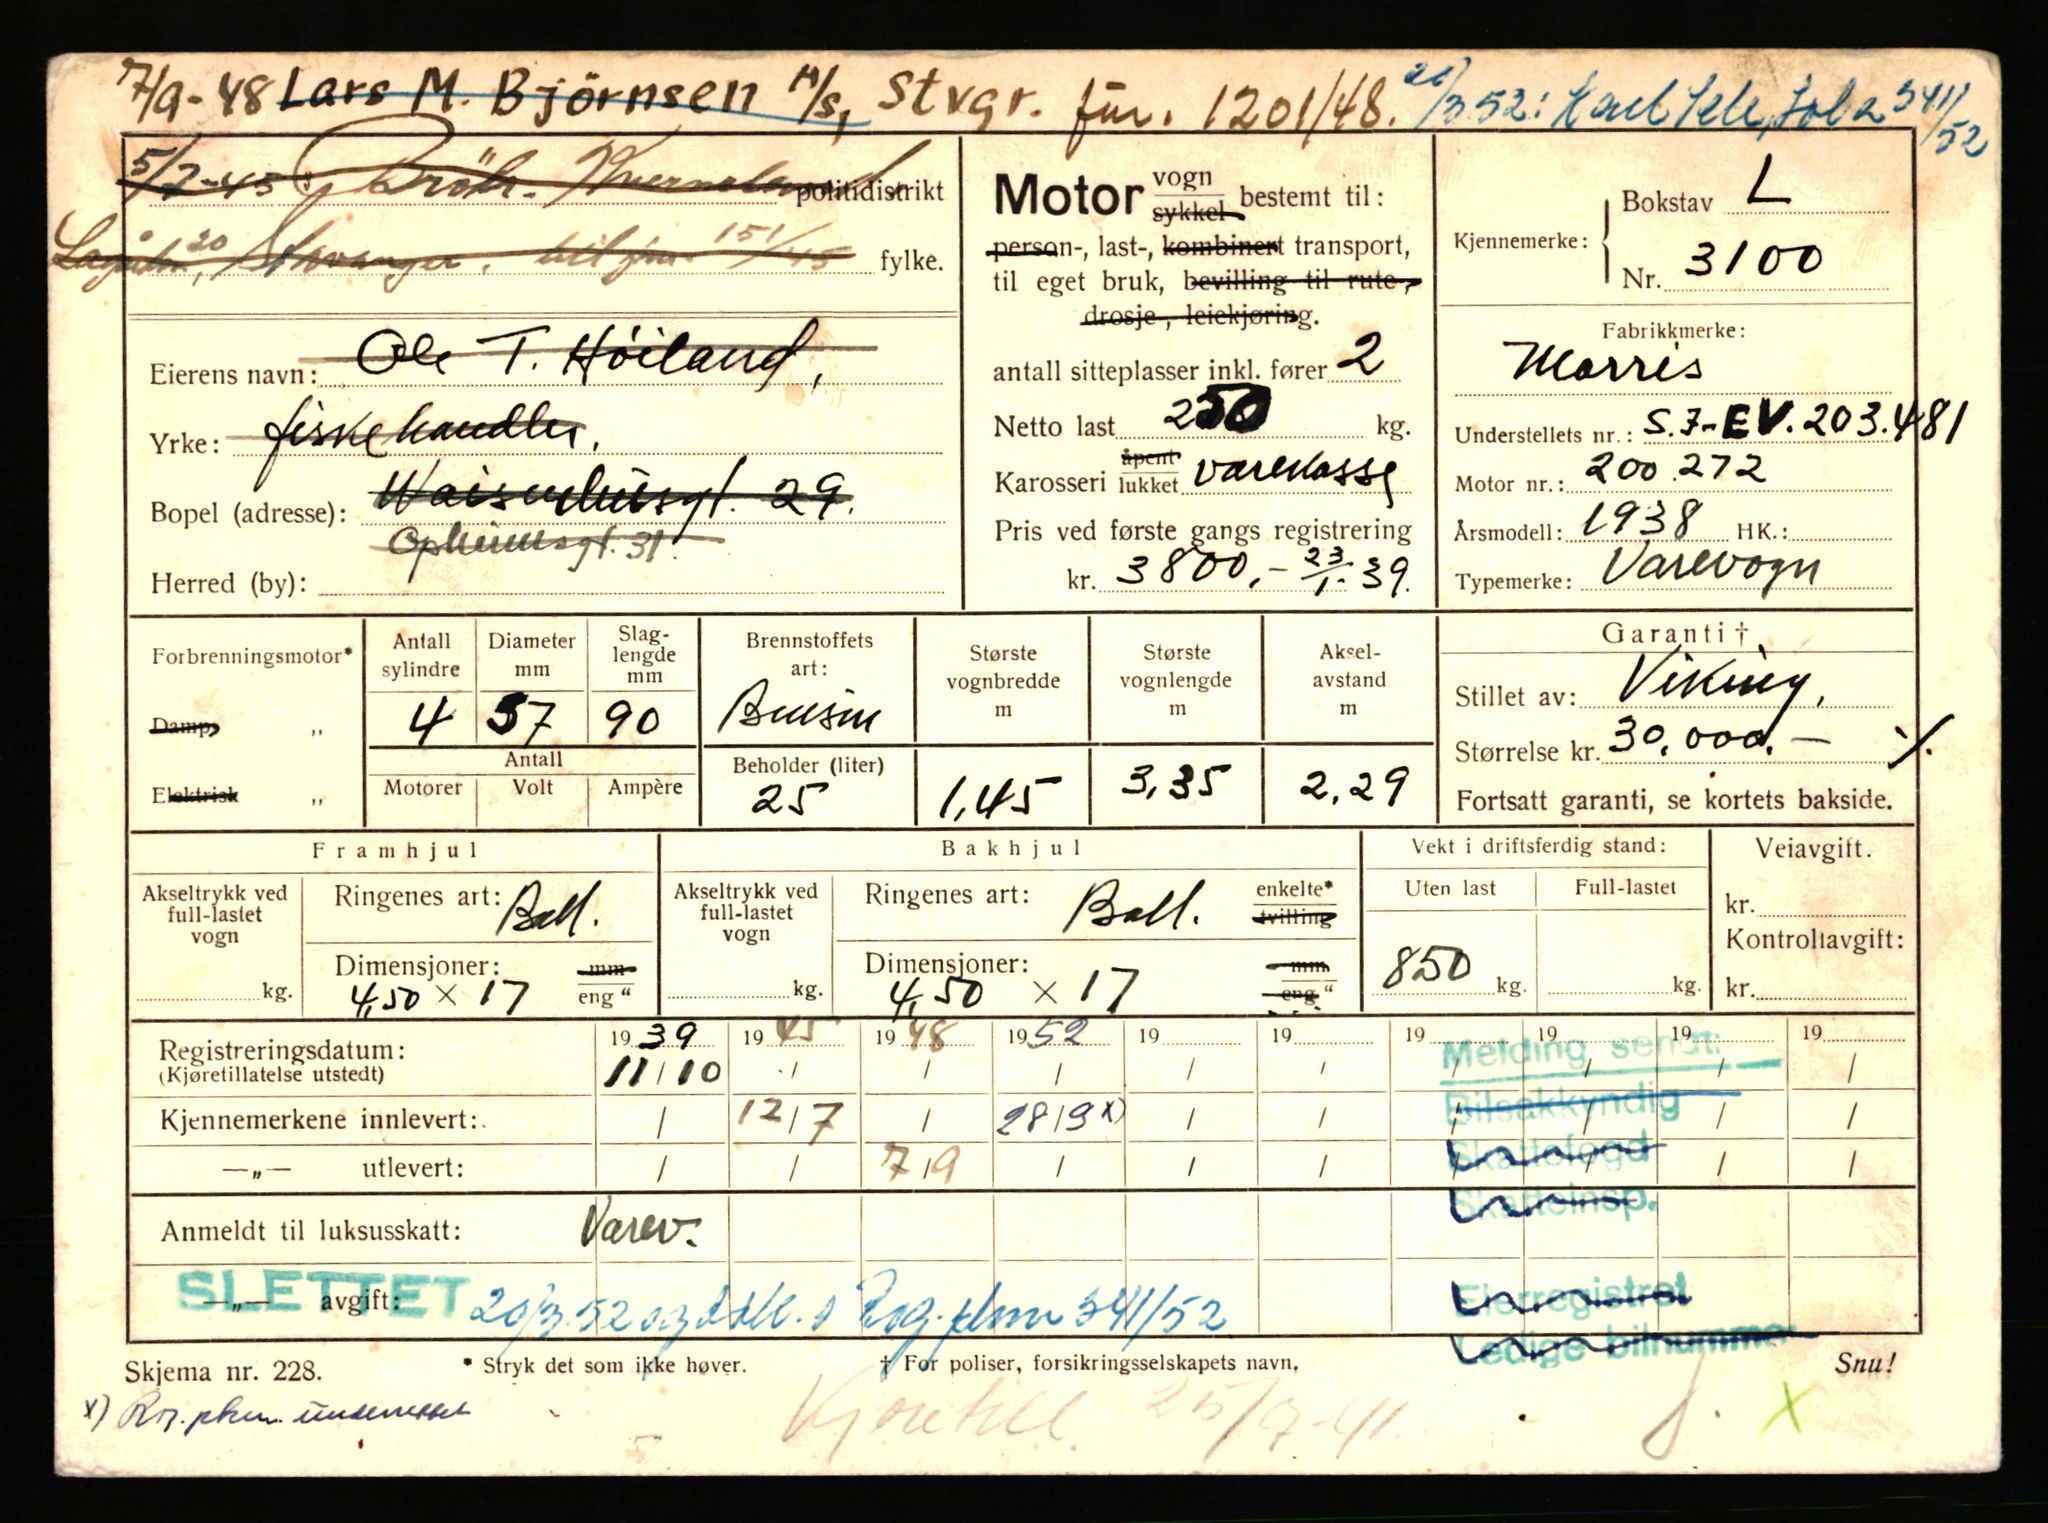 7/9-48 Lars M. Björnsen A/S, Stvgr. für. 1201/48. 20/3 52: Karl Sele, Sola 341/52
5/7-45: Brödr. Kverneland politidistrikt
Lagårdsv. 20, Stavanger. bil jnr. 151/45 fylke.
Eierens navn: Ole T. Höiland,
Yrke: fiskehandler,
Bopel (adresse): Waisenhusgt. 29.
Opheimsgt. 31.
Herred (by):
Motor vogn sykkel bestemt til:
person-, last-, kombinert transport,
til eget bruk, bevilling til rute-,
drosje-, leiekjøring.
antall sitteplasser inkl. fører 2
Netto last 250 kg.
Karosseri åpent lukket varekasse
Pris ved første gangs registrering
kr. 3800,- 23/1-39.
Kjennemerke: Bokstav L
Nr. 3100
Fabrikkmerke:
Morris
Understellets nr.: S.7-EV.203.481
Motor nr.: 200.272
Årsmodell: 1938 HK.:
Typemerke: Varevogn
Forbrenningsmotor*
Damp „
Elektrisk „
Antall sylindre 4
Diameter mm 57
Slaglengde mm 90
Antall
Motorer Volt Ampère
Brennstoffets art: Bensin
Beholder (liter) 25
Største vognbredde m 1,45
Største vognlengde m 3,35
Akselavstand m 2,29
Garanti †
Stillet av: Viking,
Størrelse kr. 30.000.- %.
Fortsatt garanti, se kortets bakside.
Framhjul
Akseltrykk ved full-lastet vogn kg.
Ringenes art: Ball.
Dimensjoner: mm
4,50 × 17 eng "
Bakhjul
Akseltrykk ved full-lastet vogn kg.
Ringenes art: Ball. enkelte* tvilling
Dimensjoner: mm
4,50 × 17 eng "
Vekt i driftsferdig stand:
Uten last Full-lastet
850 kg. kg.
Veiavgift.
kr.
Kontrollavgift:
kr.
1939 1945 1948 1952 19 19 19 19 19 19
Registreringsdatum: 11/10 / / / / / / / / /
(Kjøretillatelse utstedt)
Kjennemerkene innlevert: / 12/7 / 28/9 x) / / / / / /
—„— utlevert: / / 7/9 / / / / / / /
Anmeldt til luksusskatt: Varev.
—„— avgift:
SLETTET 20/3 52 og Rog. jnr 341/52
Melding sendt:
Bilsakkyndig
Skattefogd
Skatteinsp.
Eierregistret
Ledige bilnummer
Skjema nr. 228.
* Stryk det som ikke høver.
† For poliser, forsikringsselskapets navn.
Snu!
x) Rog.
Kjøretill. 25/9-41.
X